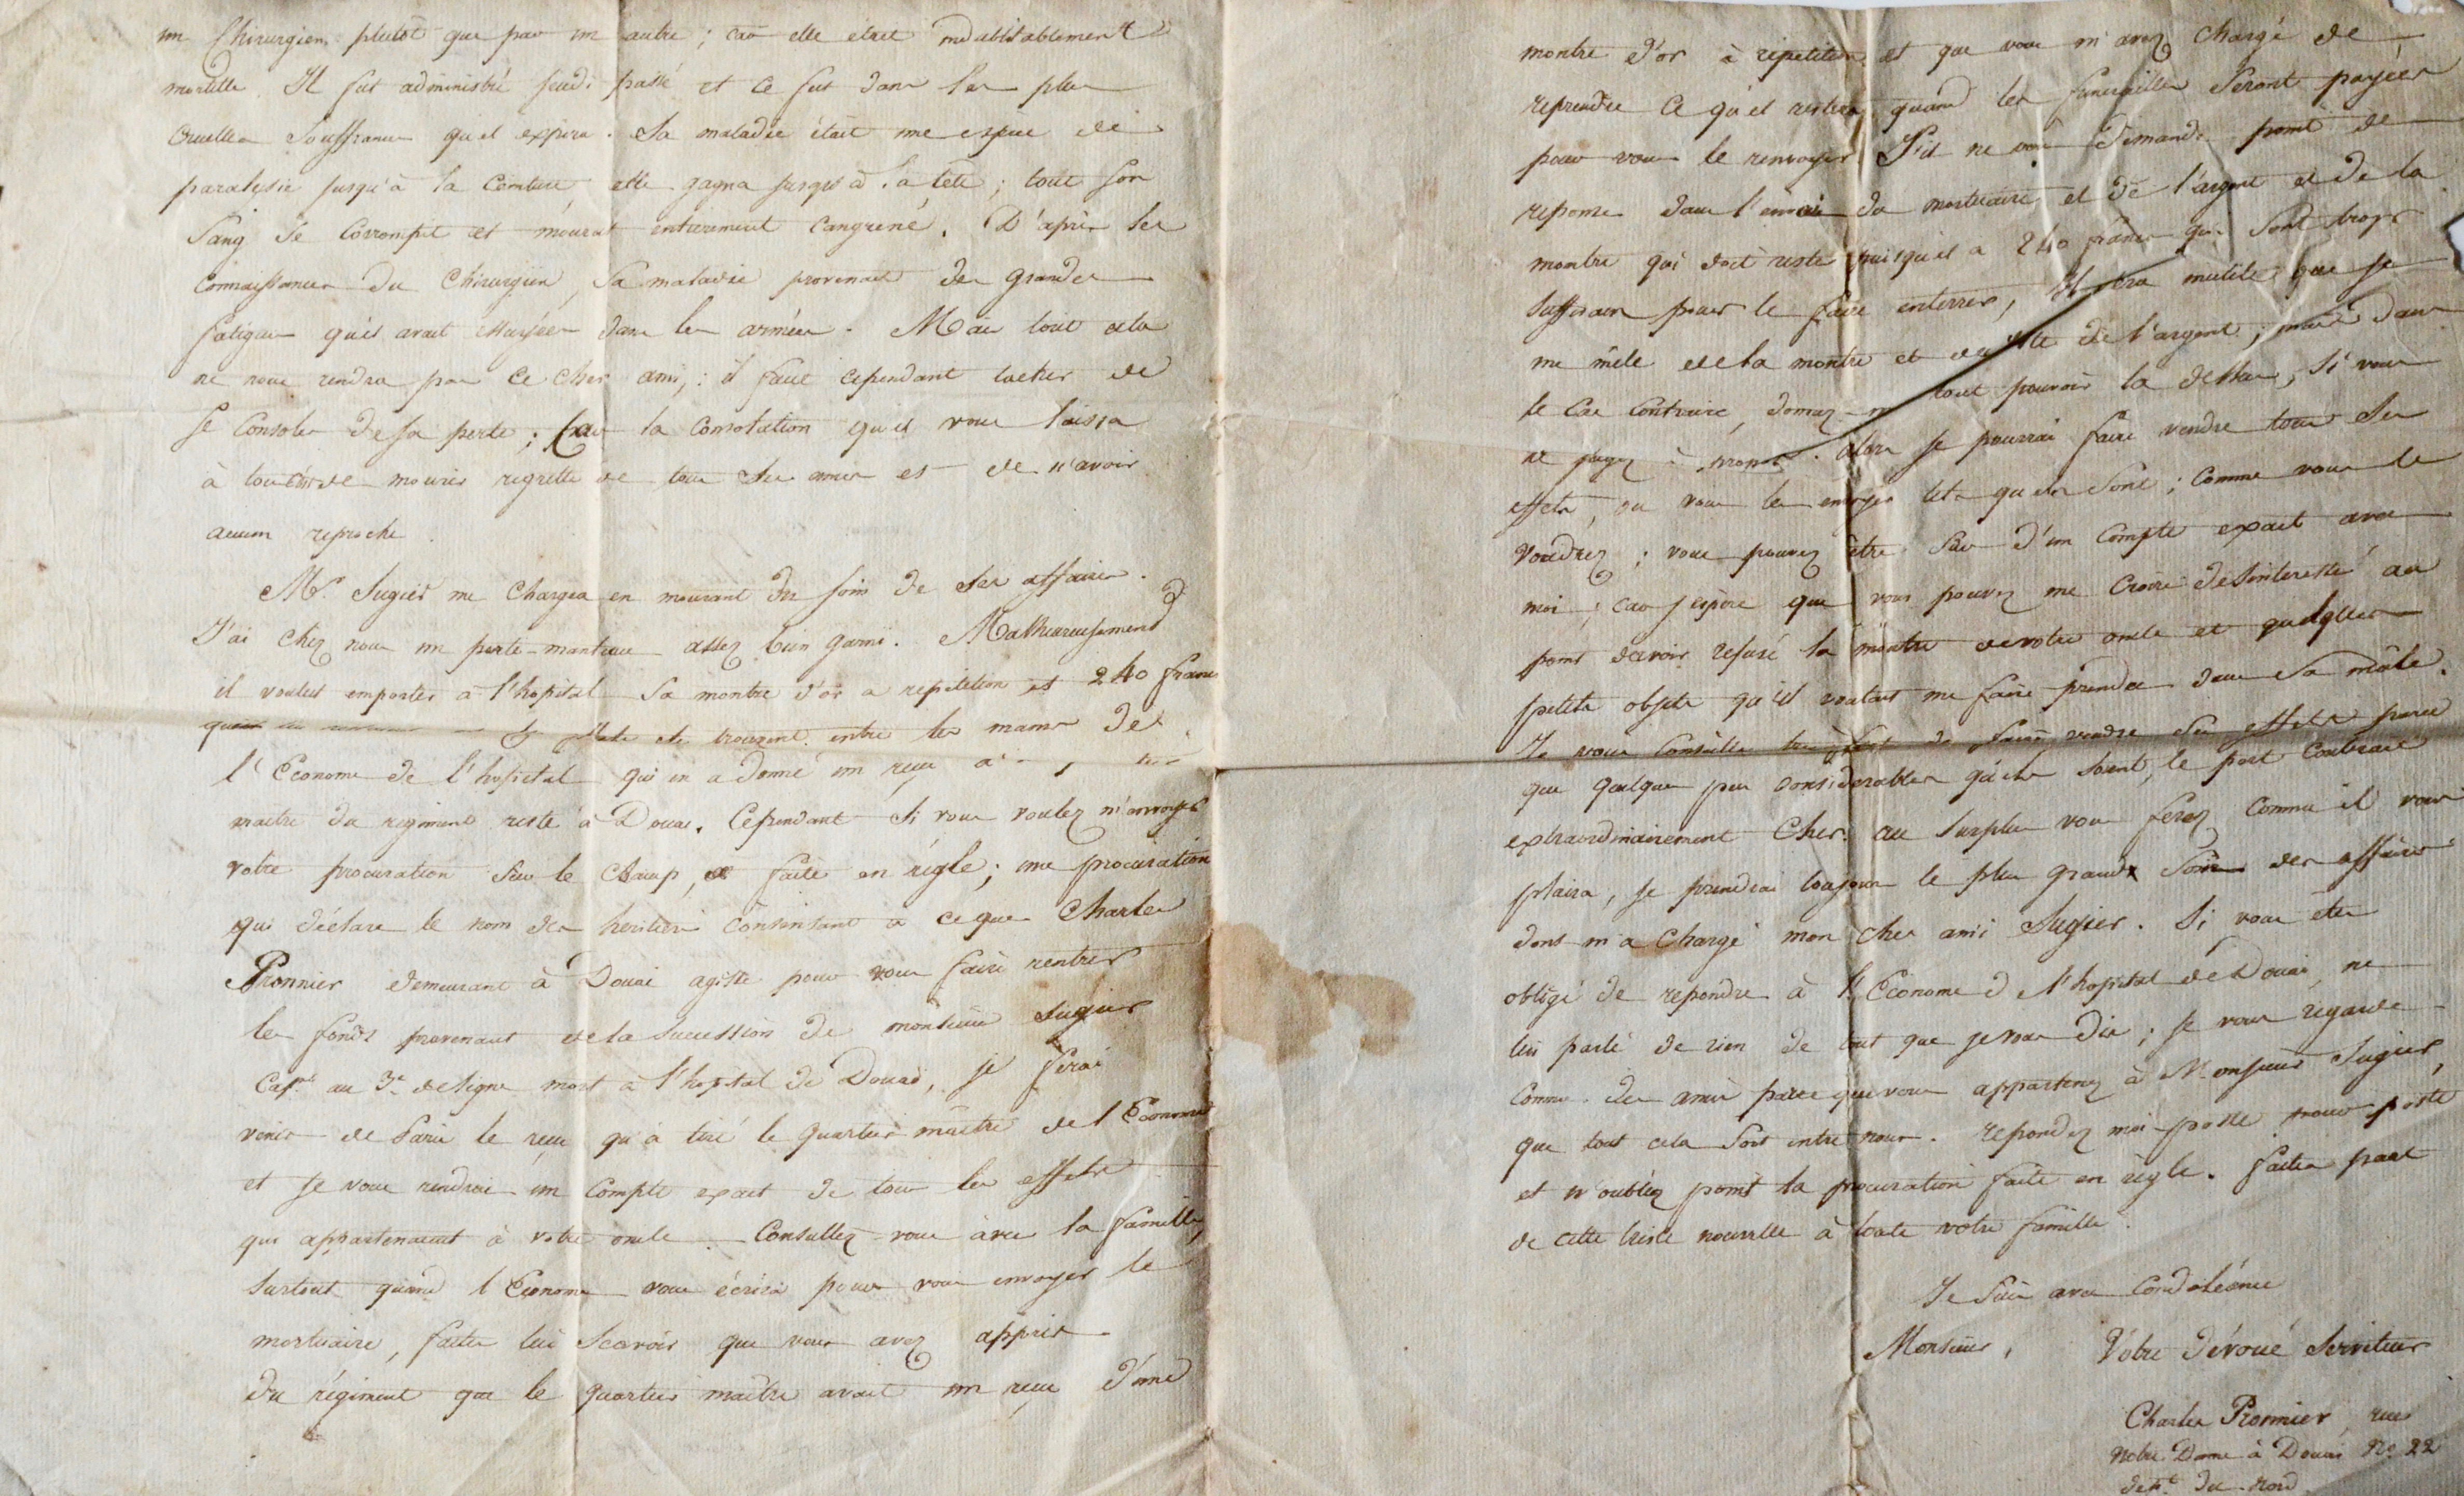 un Chirurgien plutôt que par un autre ; car elle était indubitablement
mortelle. Il fut administré jeudi passé et ce fut dans les plus
cruelles Souffrances qu'il expira. Sa maladie était une espèce de
paralysie jusqu'à la Ceinture elle gagna jusqu'à la tête ; tout son
Sang se Corrompit et mourut entierement Cangrené. D'après les
Connaissances du Chirurgien, Sa maladie provenait des grandes
fatigues qu'il avait essuyées dans les armées. Mais tout cela
ne nous rendra pas ce cher ami ; il faut cependant tacher de
se Consoler de sa perte ; par la Consolation qu'il vous laissa
à tous de mourir regretté de tous Ses amis et de n'avoir
aucun reproche.
Mr. Sugier me Chargea en mourant du soin de Ses affaires.
J'ai Chez nous un porte-manteau assez bien garni. Malheureusement
il voulut emporter à l'hopital Sa montre d'or a repetition et 240 francs
se trouvent entre les mains de
l'Econome de l'hopital qui en a donné un reçu a
maitre du regiment resté à Douai. Cependant Si vous voulez m'envoyer
votre procuration Sur le Champ, faite en règle ; une procuration
qui déclare le nom des heritiers Consentant a ce que Charles
Pionnier demeurant à Douai agisse pour vous faire rentrer
les fonds provenant de la Succession de monsieur Sugier
Capne au 3e de ligne mort à l'hopital de Douai, je ferai
venir de Paris le reçu qu'a tiré le quartier maitre de l'Econome
et je vous rendrai un Compte exact de tous les effets
qui appartenaient à votre oncle. Consultez-vous avec la famille,
Surtout quand l'Econome vous écrira pour vous envoyer le
mortuaire, faites lui Scavoir que vous avez appris
du régiment que le quartier maitre avait un reçu d'une
montre d'or à répetition et que vous m'avez chargé de
reprendre ce qu'il restera quand les funerailles Seront payées
pour vous le renvoyer. S'il ne vous demande point de
reponse dans l'envoi du mortuaire et de l'argent et de la
montre qui doit rester puisqu'il a 240 francs qui Sont trops
Suffisans pour le faire enterrer, il sera inutile que je
me mêle de la montre et du de l'argent ; mais dans
le Cas Contraire, donnez-m tout pouvoir la dessus, Si vous
le jugez à propos. alors je pourrai faire vendre tous Ses
effets, ou vous les envoyer tels qu'ils Sont ; Comme vous le
Voudrez ; vous pouvez être Sur d'un Compte exact avec
moi ; car j'espère que vous pouvez me Croire desinteressé au
point d'avoir refusé la montre de votre oncle et quelques
petits objets qu'il voulait me faire prendre dans Sa mâle.
Je vous Conseille de faire vendre Ses effets parce
que quelques peu Considerables qu'ils Soient, le port Coutrait
extraordinairement Cher. au Surplus vous ferez Comme il vous
plaira, je prendrai toujours le plus grand Soin des affaires
dont m'a Chargé mon cher ami Sugier. Si vous êtes
obligé de repondre à l'Econome d l'hopital de Douai, ne
lui parlé de rien de tout que je vous dis ; je vous regarde
Comme des amis parce que vous appartenez à Monsieur Sugier,
que tout cela Soit entre nous. repondez moi poste pour poste
et n'oubliez point la procuration faite en règle. faites part
de cette triste nouvelle à toute votre famille.
Je Suis avec Condoléance
Monsieur, Votre dévoué Serviteur
Charles Pionnier, rue
Notre Dame à Douai No. 22
dept. du Nord